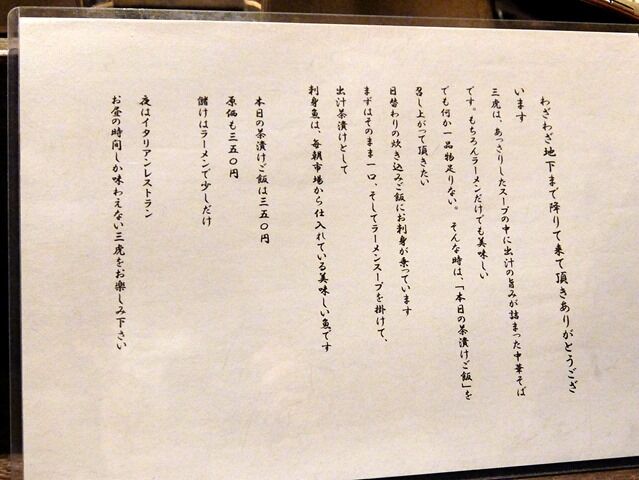 わざわざ地下まで降りて来て頂きありがとうござ
います
三虎は、あっさりしたスープの中に出汁の旨みが詰まった中華そば
です。もちろんラーメンだけでも美味しい
でも何か一品物足りない。 そんな時は、「本日の茶漬けご飯」を
召し上がって頂きたい
日替わりの炊き込みご飯にお刺身が乗っています
まずはそのまま一口、そしてラーメンスープを掛けて、
出汁茶漬けとして
刺身魚は、毎朝市場から仕入れている美味しい魚です
本日の茶漬けご飯は三五〇円
原価も三五〇円
儲けはラーメンで少しだけ
夜はイタリアンレストラン
お昼の時間しか味わえない三虎をお楽しみ下さい